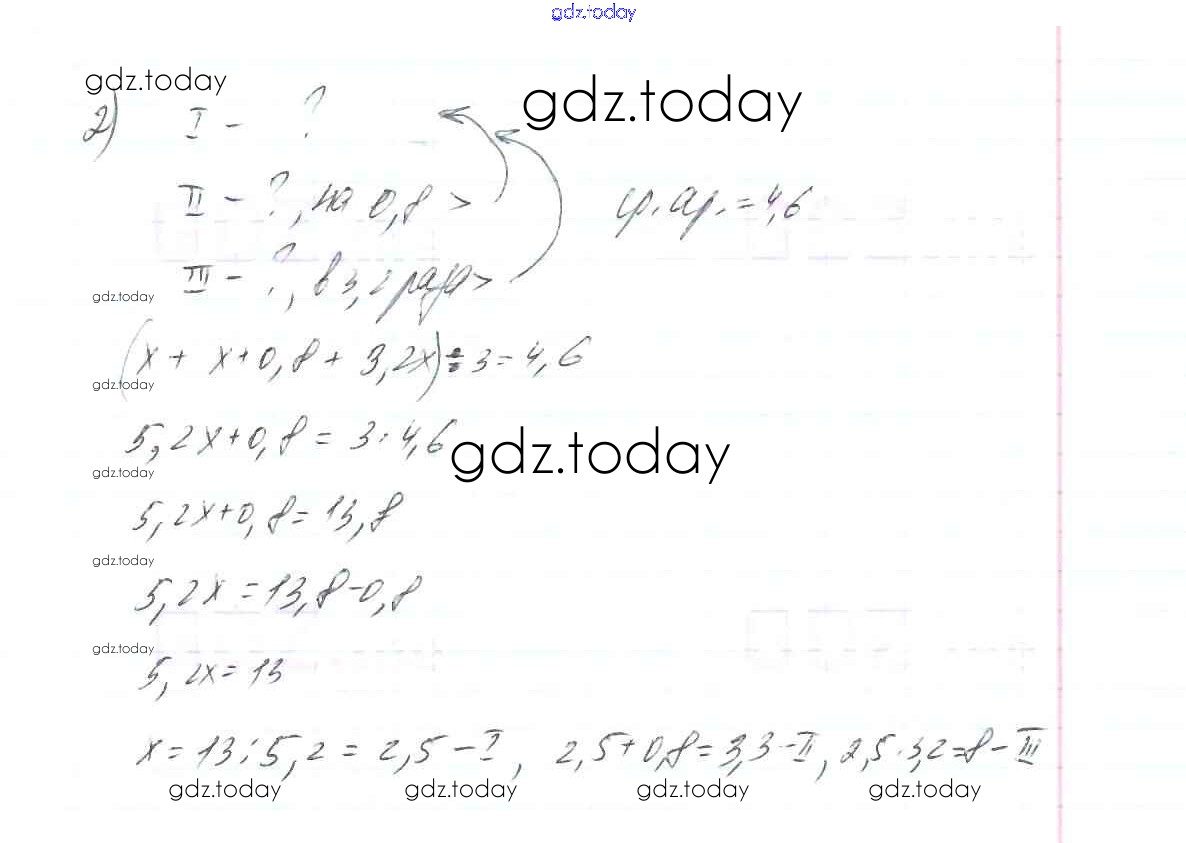 gdz.today
gdz.today
gdz.today
2) I - ?
II - ?, на 0,8 >
ср. ар. = 4,6
III - ?, в 3,2 раза >
gdz.today
(x + x+0,8 + 3,2x) ÷ 3 = 4,6
gdz.today
5,2x+0,8 = 3·4,6
gdz.today
gdz.today
5,2x+0,8 = 13,8
gdz.today
5,2x = 13,8-0,8
gdz.today
5,2x = 13
x = 13:5,2 = 2,5 - I, 2,5+0,8 = 3,3 - II, 2,5·3,2=8 - III
gdz.today gdz.today gdz.today gdz.today